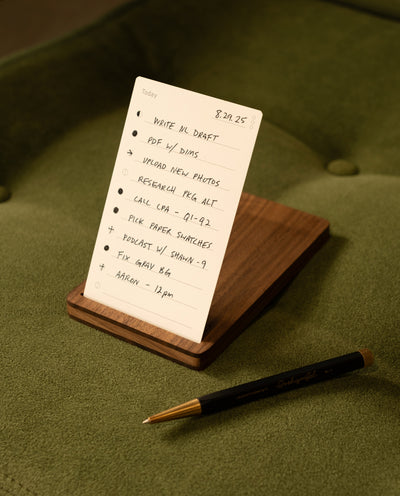 Today
8.21.25
WRITE NL DRAFT
PDF W/ DIMS
UPLOAD NEW PHOTOS
RESEARCH PKG ALT
CALL CPA - Q1-Q2
PICK PAPER SWATCHES
PODCAST W/ SHAWN - 9
FIX GRAY BG
AARON - 12pm